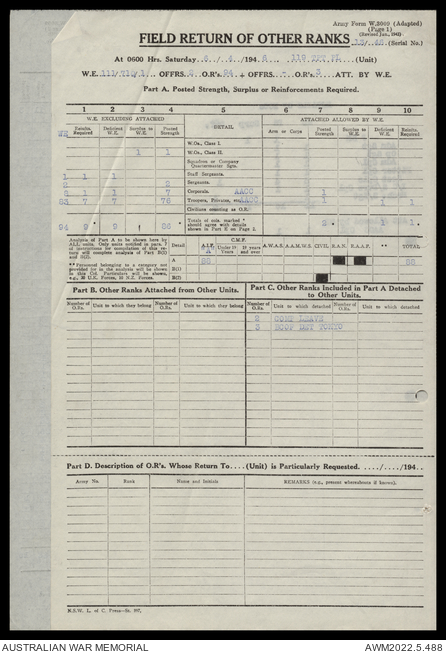 Army Form W.3009 (Adapted)
(Page 1)
(Revised Jan., 1943)
FIELD RETURN OF OTHER RANKS (Serial No.)
At 0600 Hrs. Saturday 8 / 6 /1946 (Unit)
W.E. OFFRS. O.R's. 94 + OFFRS. - O.R's. 3 ATT. BY W.E.
Part A. Posted Strength, Surplus or Reinforcements Required.
1 2 3 4 5 6 7 8 9 10
W.E. EXCLUDING ATTACHED ATTACHED ALLOWED BY W.E.
WE Reinfts. Required Deficient W.E. Surplus to W.E. Posted Strength DETAIL Arm or Corps Posted Strength Surplus to W.E. Deficient W.E. Reinfts. Required
W.Os., Class I.
1 1 W.Os., Class II.
Squadron or Company Quartermaster Sgts.
1 1 1 Staff Sergeants.
2 2 Sergeants.
1 1 7 Corporals. AACC 1
83 7 7 76 Troopers, Privates, etc. AACC 1 1 1
Civilians counting as O.R.
94 9 * 9 86 * Totals of cols. marked * should agree with details shown in Part E on Page 2. 2 * 1 1 *
Analysis of Part A to be shown here by A.I.F. units. Only units notified in para. 7 of instructions for compilation of this return will complete analysis of Part B(i) and B(ii).
** Personnel belonging to a category not provided for in the analysis will be shown in this Col. Particulars will be shown, e.g., 30 U.K. Forces, 10 N.Z. Forces.
Detail A.I.F. C.M.F. Under 19 19 years and over A.W.A.S. A.A.M.W.S. CIVIL R.A.N. R.A.A.F. ** TOTAL
A 88 88
B(i)
B(ii)
Part B. Other Ranks Attached from Other Units. Part C. Other Ranks Included in Part A Detached to Other Units.
Number of O.Rs. Unit to which they belong Number of O.Rs. Unit to which they belong Number of O.Rs. Unit to which detached Number of O.Rs. Unit to which detached
2 COMP LEAVE
3 BCOF DET TOKYO
Part D. Description of O.R's. Whose Return To....(Unit) is Particularly Requested. ..../..../194..
Army No. Rank Name and Initials REMARKS (e.g., present whereabouts if known).
N.S.W. L. of C. Press
AUSTRALIAN WAR MEMORIAL AWM2022.5.488